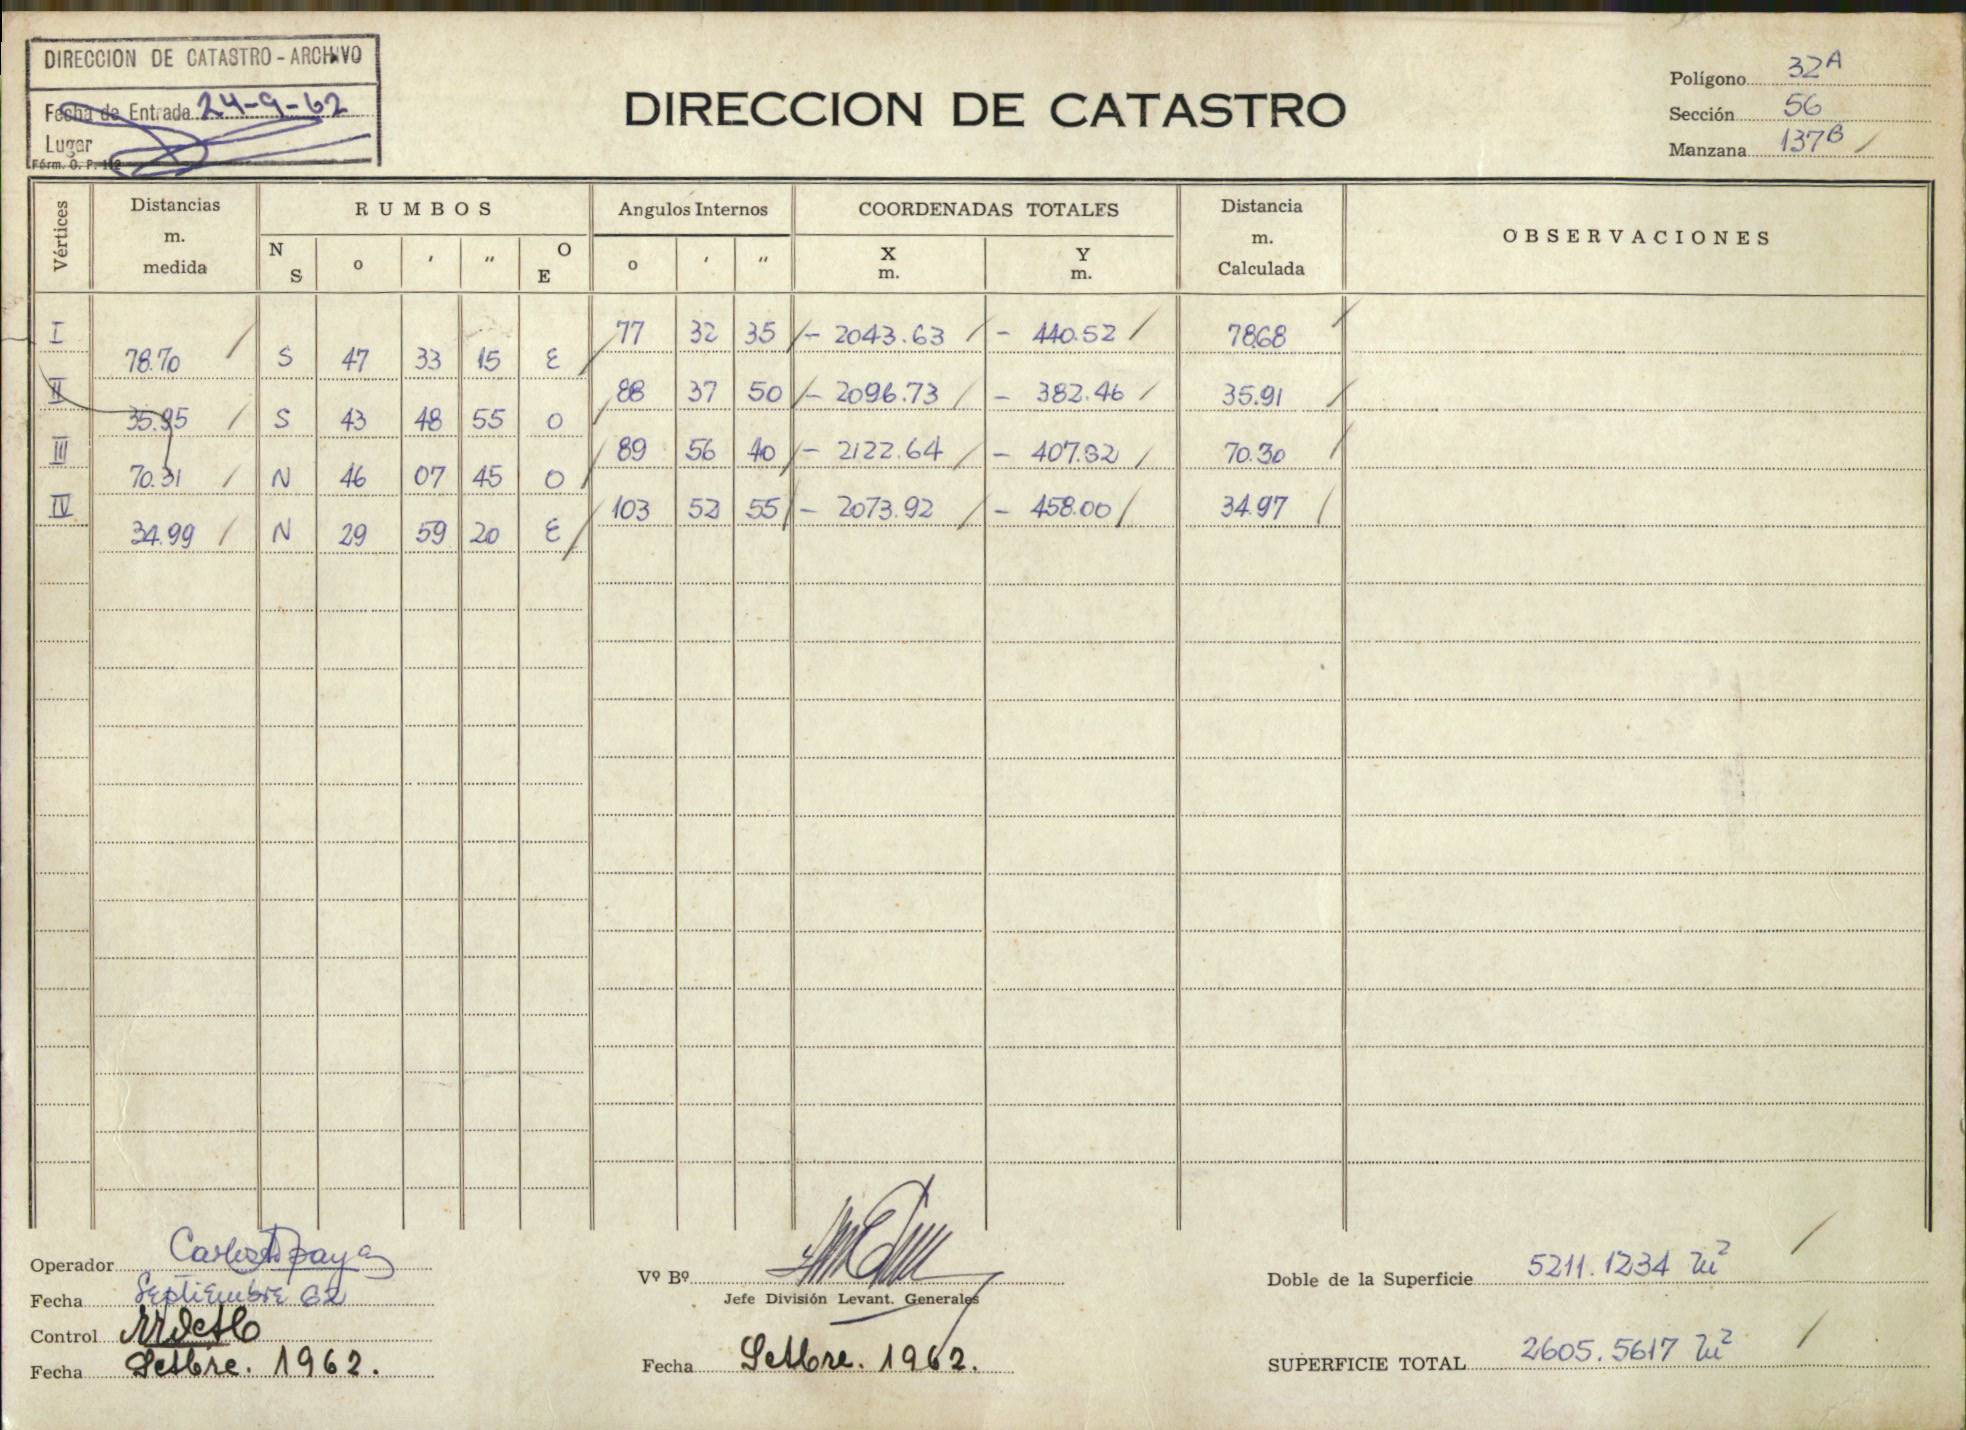 DIRECCION DE CATASTRO - ARCHIVO
Fecha de Entrada 24-9-62
Lugar
Fórm. O. P. 112
DIRECCION DE CATASTRO
Polígono 32A
Sección 56
Manzana 137B
Vértices
Distancias m. medida
RUMBOS
Angulos Internos
COORDENADAS TOTALES
Distancia m. Calculada
OBSERVACIONES
N S o ' " O E o ' " X m. Y m.
I 77 32 35 - 2043.63 - 440.52 78.68
78.70 S 47 33 15 E
II 88 37 50 - 2096.73 - 382.46 35.91
35.95 S 43 48 55 O
III 89 56 40 - 2122.64 - 407.32 70.30
70.31 N 46 07 45 O
IV 103 52 55 - 2073.92 - 458.00 34.97
34.99 N 29 59 20 E
Operador
Fecha Septiembre 62
Control
Fecha Setbre. 1962.
Vº Bº
Jefe División Levant. Generales
Fecha Setbre. 1962.
Doble de la Superficie 5211.1234 m²
SUPERFICIE TOTAL 2605.5617 m²